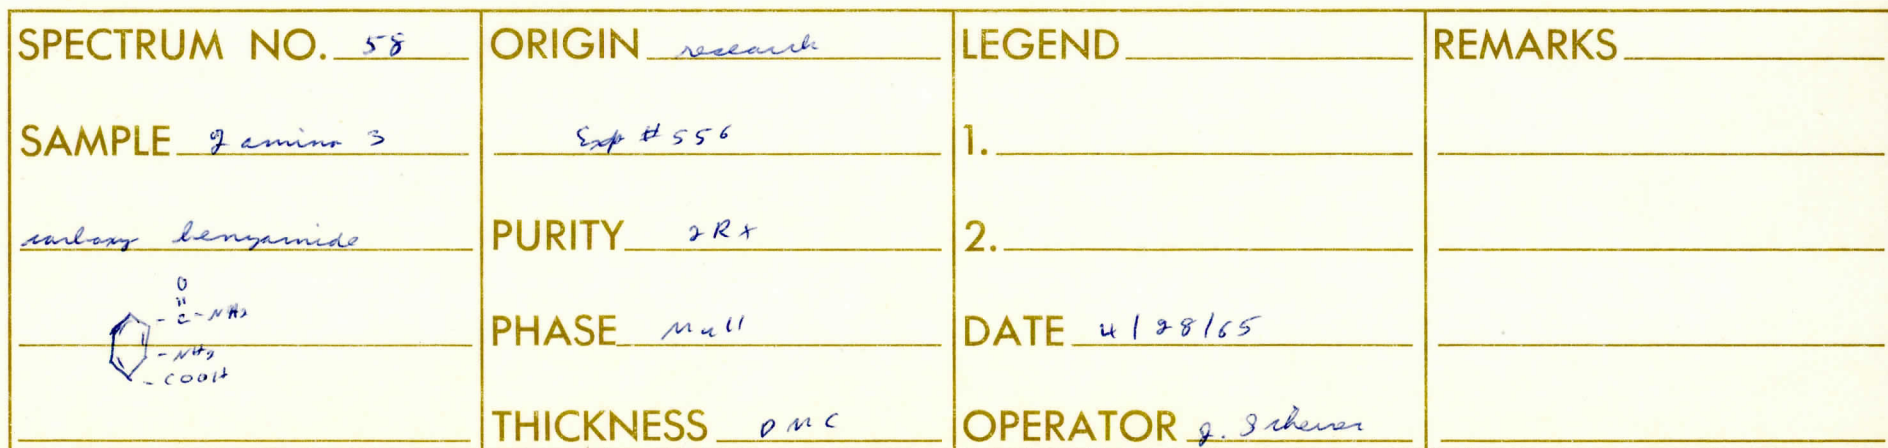 SPECTRUM NO. 58
SAMPLE 2 amino 3
carboxy benzamide
O
"
- C - NH2
- NH2
- COOH
ORIGIN research
Exp # 556
PURITY 2RX
PHASE Mull
THICKNESS
LEGEND
1.
2.
DATE 4/28/65
OPERATOR J. Scherer
REMARKS